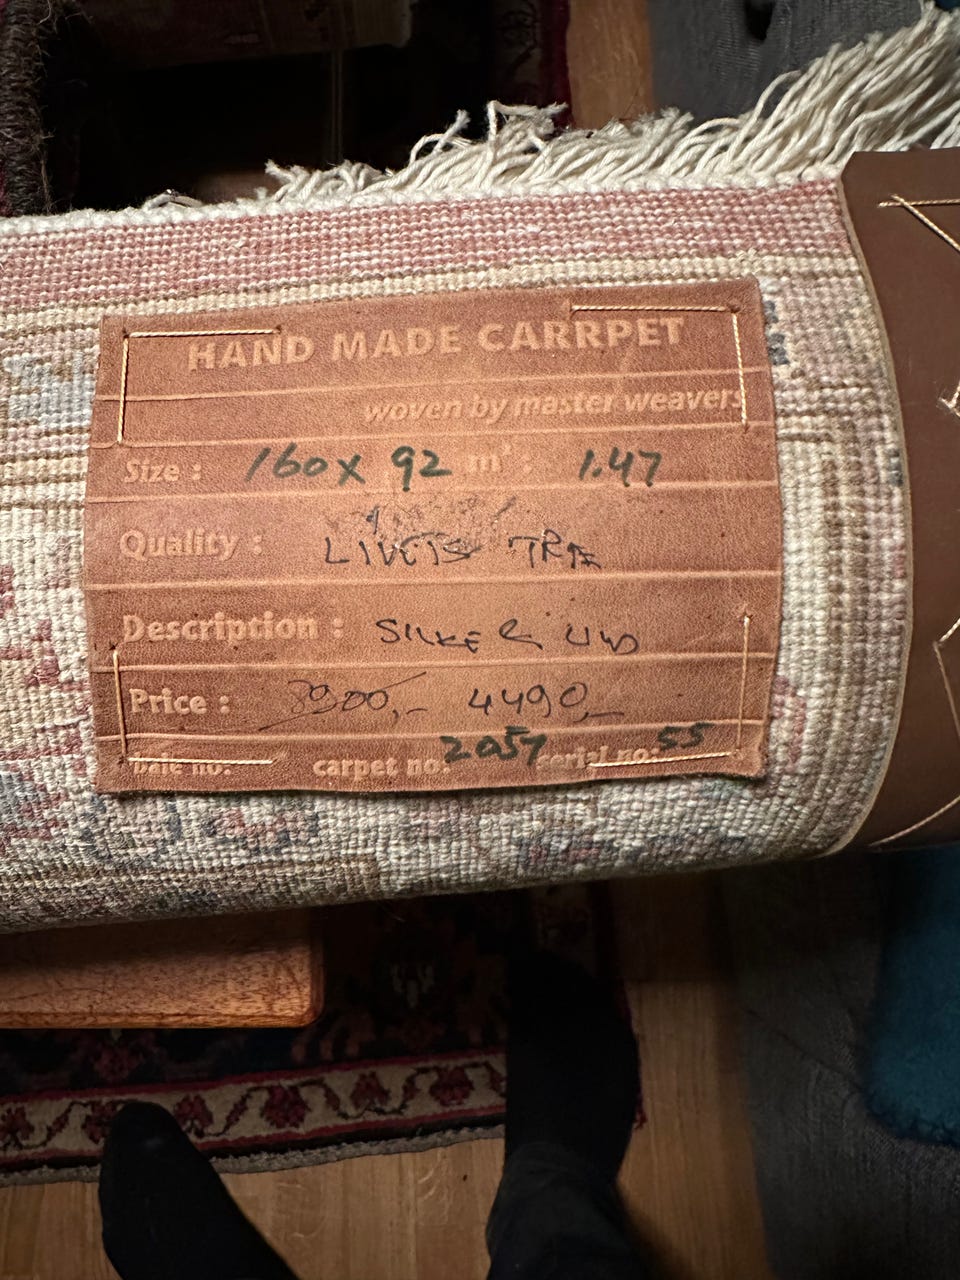 HAND MADE CARRPET
woven by master weavers
Size : 160x 92 m² : 1.47
Quality : LIVETS TRE
Description : SILKE & ULL
Price : 8900,- 4490,-
bale no: carpet no: 2057 serial no: 55